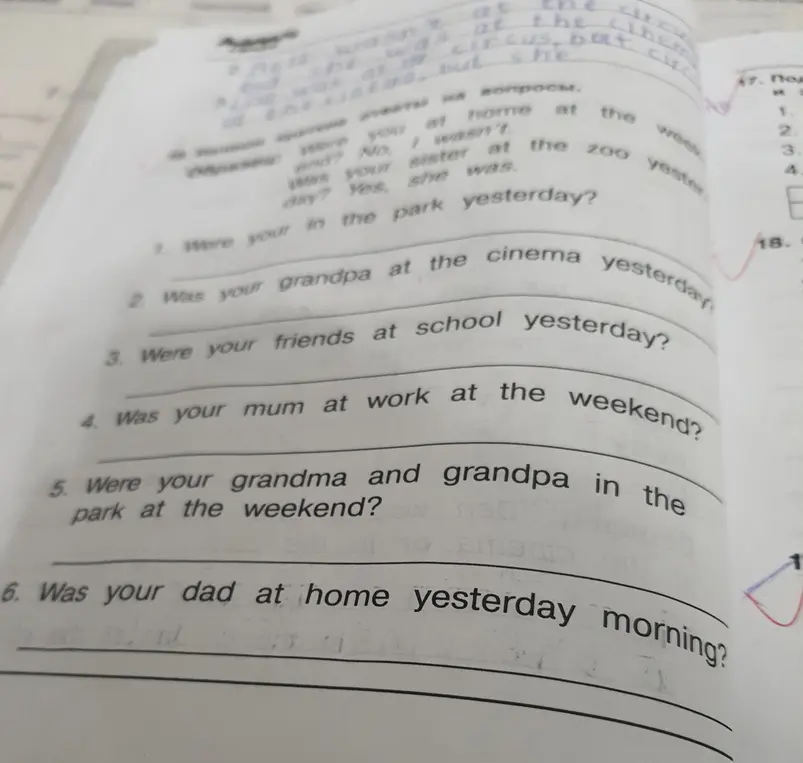 at the circu
she was at the cinem
at circus, but circ
but she
ответы на вопросы.
Were you at home at the week-
end? No, I wasn't.
Was your sister at the zoo yester-
day? Yes, she was.
1. Were your in the park yesterday?
2. Was your grandpa at the cinema yesterday?
3. Were your friends at school yesterday?
4. Was your mum at work at the weekend?
5. Were your grandma and grandpa in the
park at the weekend?
6. Was your dad at home yesterday morning?
17.
1.
2.
3.
4.
18.
1